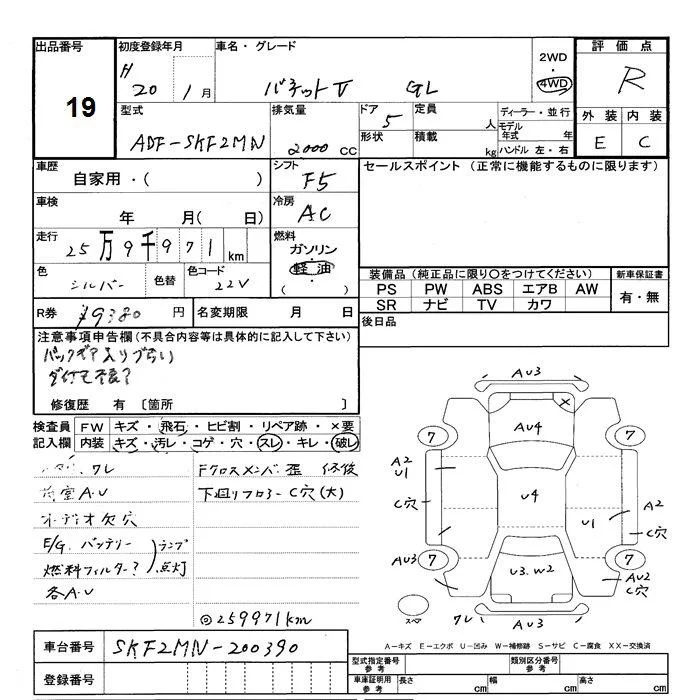 出品番号
19
初度登録年月
H 20 1月
車名・グレード
バネットV GL
2WD
4WD
評価点
R
型式
ADF-SKF2MN
排気量
2000 CC
ドア
5
形状
定員
人
積載
kg
ディーラー・並行
モデル年式 年
ハンドル 左・右
外装 内装
E C
車歴
自家用・( )
シフト
F5
セールスポイント (正常に機能するものに限ります)
車検
年 月( 日)
冷房
AC
走行
25万9千971km
燃料
ガソリン
・
軽油
( )
色
シルバー
色替
色コード
22V
装備品(純正品に限り○をつけてください)
新車保証書
PS PW ABS エアB AW
SR ナビ TV カワ
有・無
R券 ¥9380 円
名変期限 月 日
後日品
注意事項申告欄(不具合内容等は具体的に記入して下さい)
バックギア入りづらい
修復歴 有 〔箇所 〕
検査員 記入欄
FW キズ・飛石・ヒビ割・リペア跡・×要
内装 キズ・汚レ・コゲ・穴・スレ・キレ・破レ
ワレ
荷室A.U
オーディオ欠穴
E/G. バッテリー
燃料フィルター?
ランプ点灯
各A.U
Fクロスメンバ歪 修復
下廻りフロアーC穴(大)
◎259971km
AU3
×
7
AU4
7
A2
U1
C穴
U4
U1
A2
C穴
AU3
7
U3.W2
7
AU2
C穴
スペア
ワレ
AU3
A-キズ E-エクボ U-凹み W-補修跡 S-サビ C-腐食 XX-交換済
車台番号
SKF2MN-200390
登録番号
型式指定番号 参考
類別区分番号 参考
車庫証明用 参考
長さ cm
幅 cm
高さ cm